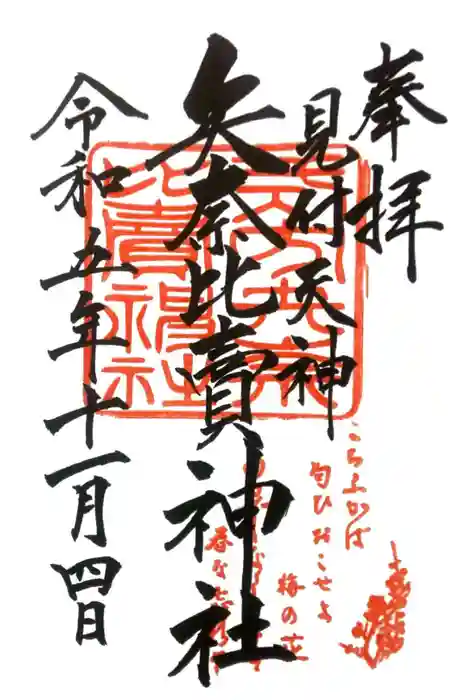 奉拝
見付天神
矢奈比賣神社
令和五年十一月四日
こちふかば
匂ひおこせよ
梅の花